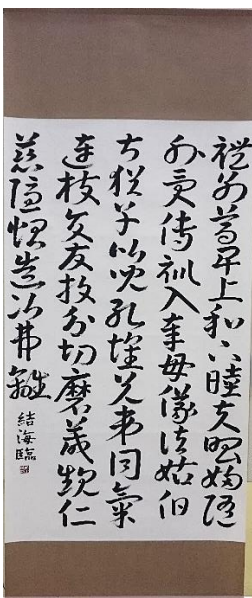 禮別尊卑上和下睦夫唱婦隨
外受傅訓入奉母儀諸姑伯
叔猶子比兒孔懷兄弟同氣
連枝交友投分切磨箴規仁
慈隱惻造次弗離
結海臨